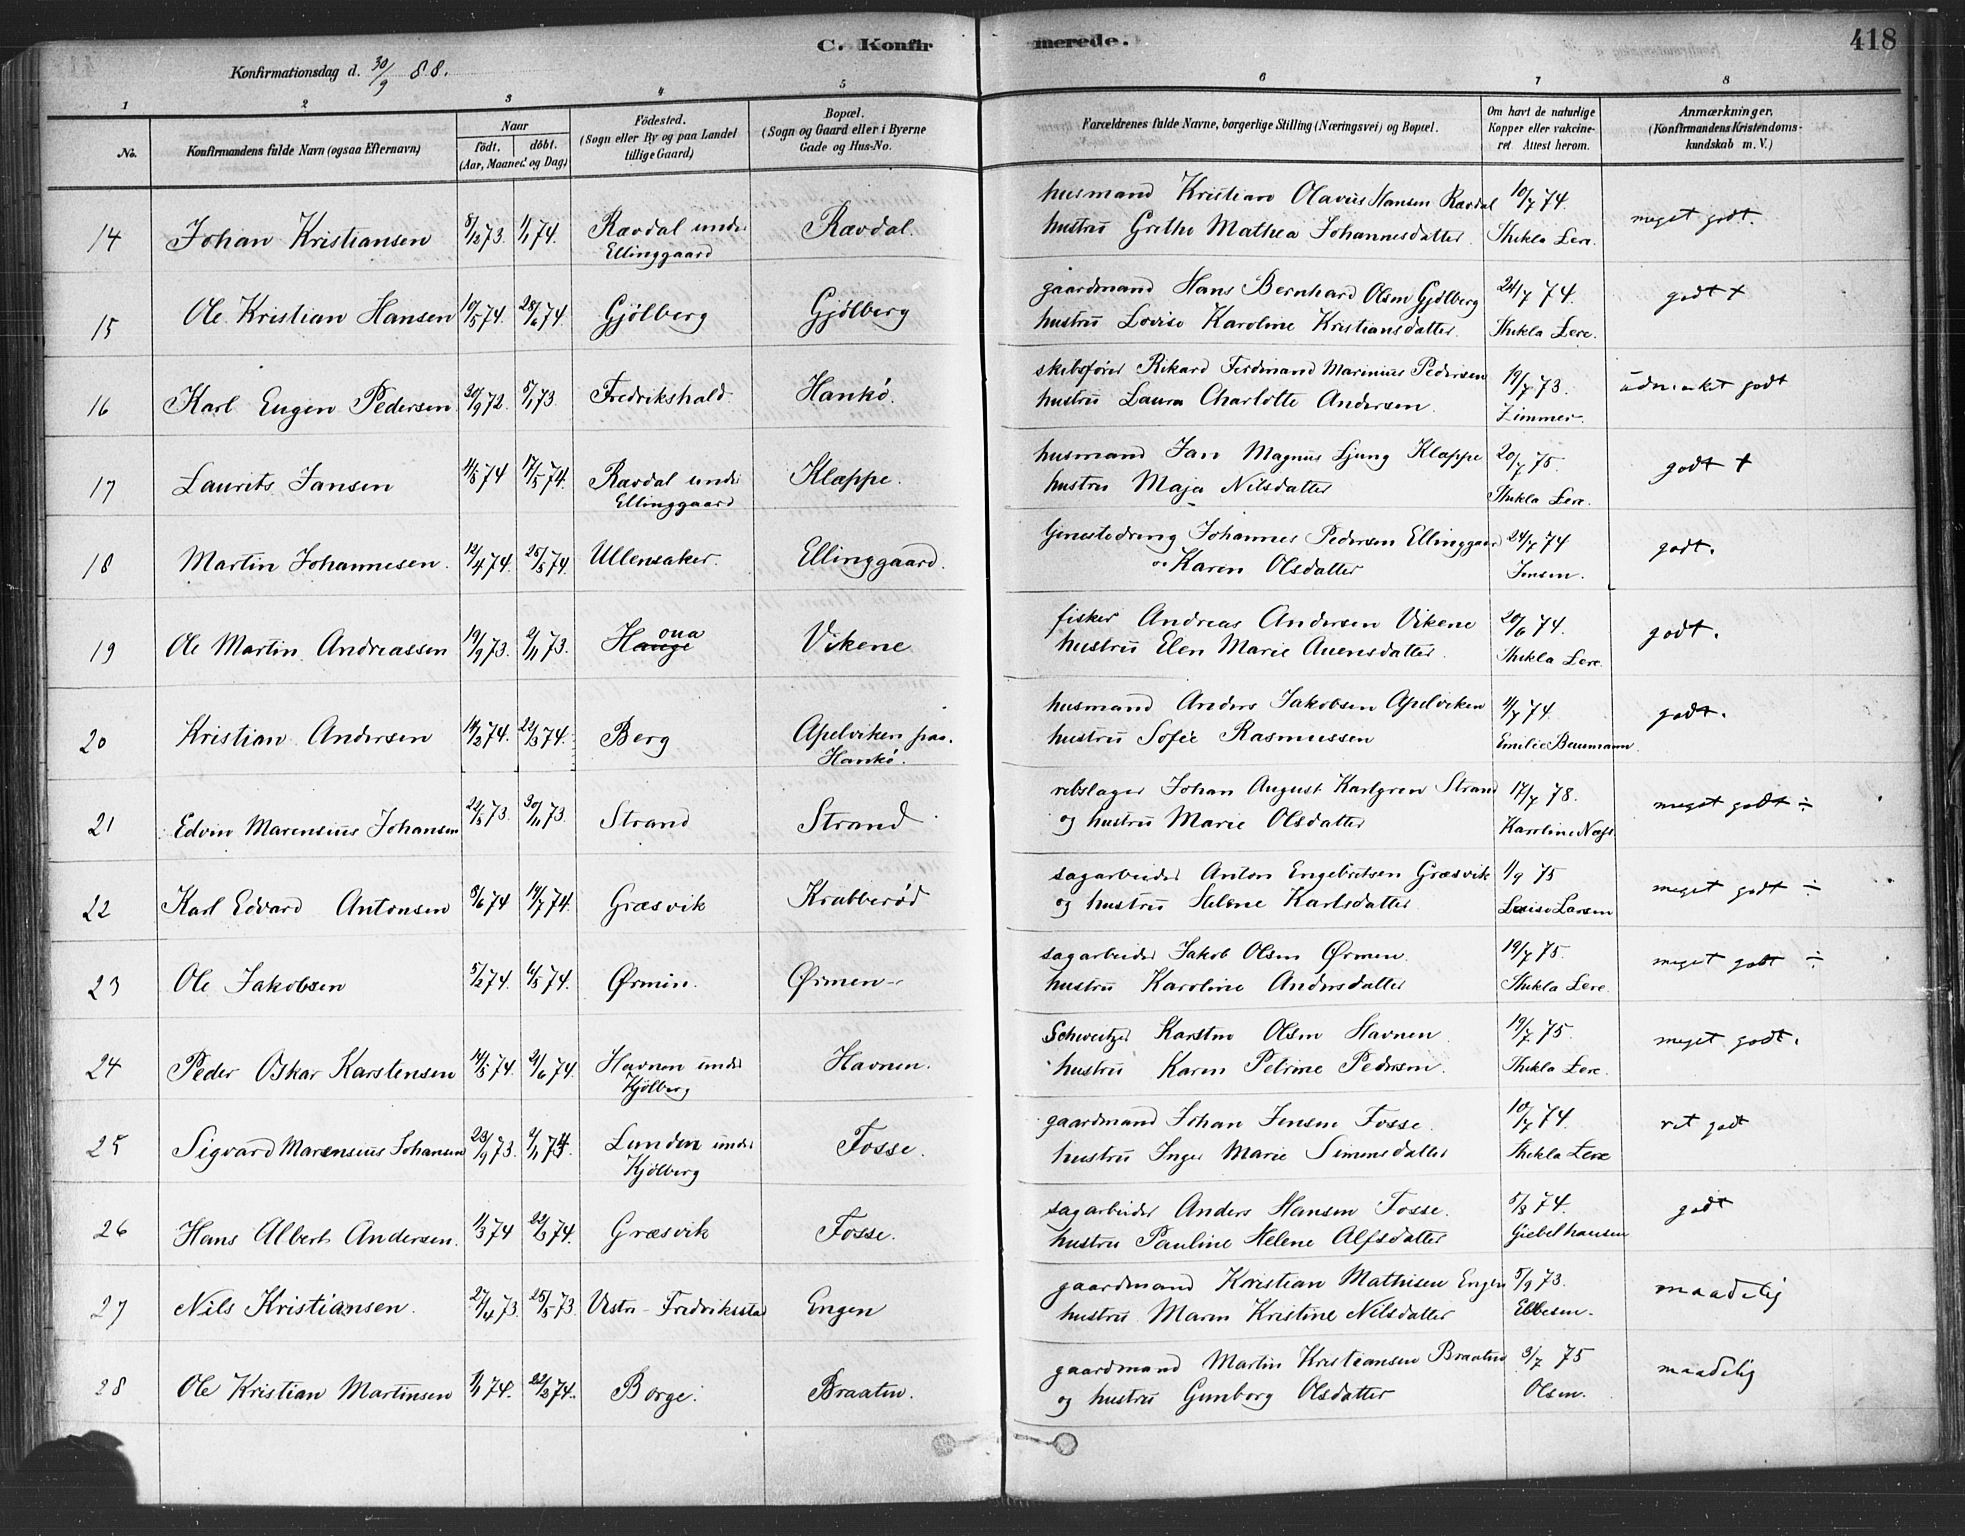 C. Konfirmerede.
418
Konfirmationsdag d. 30/9 88.
1 2 3 4 5 6 7 8
No. Konfirmandens fulde Navn (ogsaa Efternavn) Naar födt. döbt. (Aar, Maaned og Dag) Födested. (Sogn eller By og paa Landet tillige Gaard) Bopæl. (Sogn og Gaard eller i Byerne Gade og Hus-No. Forældrenes fulde Navne, borgerlige Stilling (Næringsvei) og Bopæl. Om havt de naturlige Kopper eller vakcineret. Attest herom. Anmærkninger, (Konfirmandens Kristendomskundskab m. V.)
14 Johan Kristiansen 8/12 73. 1/1 74. Ravdal under Ellinggaard Rævdal. husmand Kristian Olavus Hansen Rævdal hustru Grethe Mathea Johannesdatter. 10/7 74. Thekla Lere. meget godt.
15 Ole Kristian Hansen 10/5 74. 28/6 74. Gjölberg Gjölberg gaardmand Hans Bernhard Olsen Gjölberg hustru Lovise Karoline Kristiansdatter. 24/7 74. Thekla Lere. godt +
16 Karl Eugen Pedersen 20/9 72. 5/1 73. Fredrikshald. Hankö. skibsförer Rikard Ferdinand Marinius Pedersen hustru Laura Charlotte Andersen. 19/7 73. Zimmer. udmærket godt
17 Laurits Jansen 11/3 74 17/5 74. Rævdal under Ellinggaard Klæppe. husmand Jan Magnus Ljung Klæppe hustru Maja Nilsdatter 20/7 75. Thekla Lere. godt +
18 Martin Johannesen. 12/4 74. 25/5 74. Ullensaker. Ellinggaard. tjenestedreng Johannes Pedersen Ellinggaard og Karen Olsdatter 24/7 74 Jensen. godt.
19 Ole Martin Andreassen 19/9 73. 2/11 73. Hauge ona Vikene fisker Andreas Andersen Vikene hustru Elen Marie Auensdatter. 20/6 74. Thekla Lere. godt.
20 Kristian Andersen 14/2 74. 22/3 74. Berg Apelviken paa Hankö. husmand Anders Jakobsen Apelviken hustru Sofie Rasmussen 11/7 74. Emilie Baumann. godt.
21 Edvin Marensius Johansen 22/8 73. 30/11 73. Strand Strand rebslager Johan August Karlgren Strand og hustru Marie Olsdatter 17/7 78. Karoline Næss. meget godt ÷
22 Karl Edvard Antonsen 8/6 74 19/7 74. Græsvik Krabberöd sagarbeider Anton Engebretsen Græsvik og hustru Helene Karlsdatter. 1/9 75 Lovise Larsen meget godt ÷
23 Ole Jakobsen 5/2 74. 6/5 74. Ørmen. Ørmen. sagarbeider Jakob Olsen Ørmen. hustru Karoline Andersdatter 19/7 75. Thekla Lere. meget godt ÷
24 Peder Oskar Karstensen 14/5 74. 21/6 74. Havnen under Kjölberg Havnen. Schweitzer Karsten Olsen Havnen. hustru Karen Petrine Pedersen. 19/7 75. Thekla Lere. meget godt.
25 Sigvard Marensius Johansen 23/9 73. 2/11 73. Lunden under Kjölberg Fosse. gaardmand Johan Jensen Fosse. hustru Inger Marie Simensdatter 10/7 74. Thekla Lere ret godt
26 Hans Albert Andersen. 1/3 74 22/3 74. Græsvik Fosse. sagarbeider Anders Hansen Fosse. hustru Pauline Helene Alfsdatter 5/8 74. Giebelhausen godt
27 Nils Kristiansen. 27/4 73. 25/5 73. Vestre Fredriksstad Engen gaardmand Kristian Mathisen Engen hustru Maren Kristine Nilsdatter 5/9 73. Ebbesen. maadelig
28 Ole Kristian Martinsen 1/1 74. 22/2 74. Borge. Braaten. gaardmand Martin Kristiansen Braaten og hustru Gunborg Olsdatter 3/7 75 Olsen. maadelig